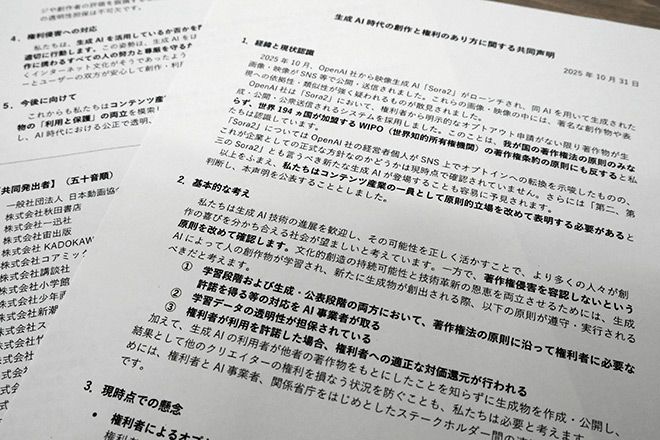 ジや創作者の評価を毀損す
の透明性担保は不可欠です。
4. 権利侵害への対応
私たちは、生成AIを活用しているか否かを問
適切に行動します。この姿勢は、生成AIをは
作に携わるすべての人の努力と尊厳を守るた
くインターネット文化がそうであったよう
ーとユーザーの双方が安心して創作・利用
5. 今後に向けて
これからも私たちはコンテンツ産
物の「利用と保護」の両立を模索し
し、AI時代における公正で透明
共同発出者】(五十音順)
一般社団法人 日本動画協会
株式会社秋田書店
株式会社一迅社
株式会社宙出版
株式会社 KADOKAWA
株式会社コアミック
株式会社講談社
株式会社小学館
株式会社少年画
株式会社新潮
生成 AI 時代の創作と権利のあり方に関する共同声明
2025 年 10 月 31 日
1. 経緯と現状認識
2025 年 10 月、OpenAI 社から映像生成 AI「Sora2」がローンチされ、同 AI を用いて生成された
画像・映像が SNS 等で公開・送信されました。これらの画像・映像の中には、著名な創作物や表
現への依拠性・類似性が強く疑われるものが散見されました。
OpenAI 社は「Sora2」において、権利者から明示的なオプトアウト申請がない限り著作物が生
成・公開・公衆送信されるシステムを採用しました。このことは、我が国の著作権法の原則のみな
らず、世界 194 ヵ国が加盟する WIPO(世界知的所有権機関)の著作権条約の原則にも反すると私
たちは認識しています。
「Sora2」については OpenAI 社の経営者個人が SNS 上でオプトインへの転換を示唆したものの、
これが企業としての正式な方針なのかどうかは現時点で確認されていません。さらには「第二、第
三の Sora2」とも言うべき新たな生成 AI が登場することも容易に予見されます。
以上をふまえ、私たちはコンテンツ産業の一員として原則的立場を改めて表明する必要があると
判断し、本声明を公表することとしました。
2. 基本的な考え
私たちは生成 AI 技術の進展を歓迎し、その可能性を正しく活かすことで、より多くの人々が創
作の喜びを分かち合える社会が望ましいと考えています。一方で、著作権侵害を容認しないという
原則を改めて確認します。文化的創造の持続可能性と技術革新の恩恵を両立させるためには、生成
AI によって人の創作物が学習され、新たに生成物が創出される際、以下の原則が遵守・実行される
べきだと考えます。
① 学習段階および生成・公表段階の両方において、著作権法の原則に沿って権利者に必要な
許諾を得る等の対応を AI 事業者が取る
② 学習データの透明性が担保されている
③ 権利者が利用を許諾した場合、権利者への適正な対価還元が行われる
加えて、生成 AI の利用者が他者の著作物をもとにしたことを知らずに生成物を作成・公開し、
結果として他のクリエイターの権利を損なう状況を防ぐことも、私たちは必要と考えます
めには、権利者と AI 事業者、関係省庁をはじめとしたステークホルダー間の
です。
3. 現時点での懸念
• 権利者によるオプ